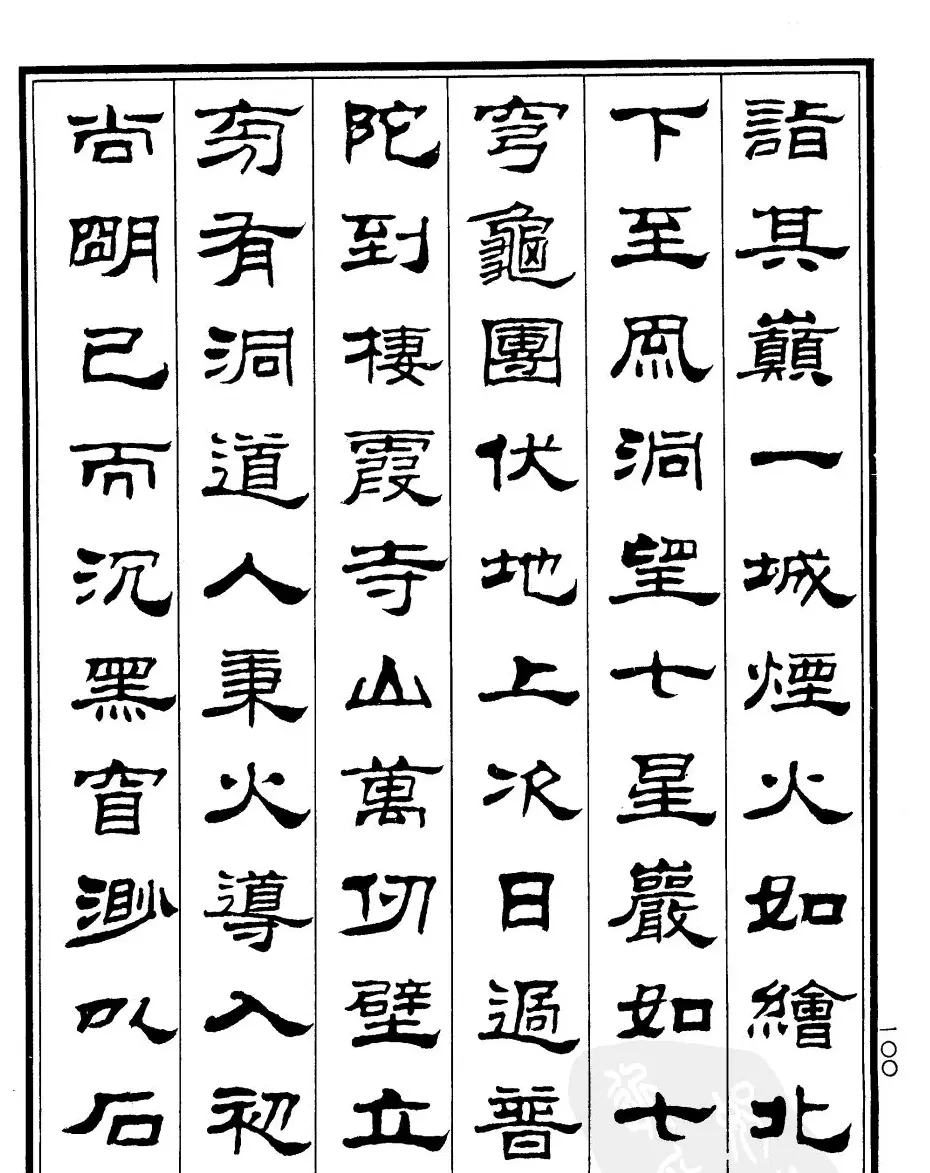 詣其巔一城煙火如繪北
下至風洞望七星巖如七
穹龜團伏地上次日過普
陀到棲霞寺山萬仞壁立
旁有洞道人秉火導入初
尚朙已而沉黑窅渺以石
一〇〇